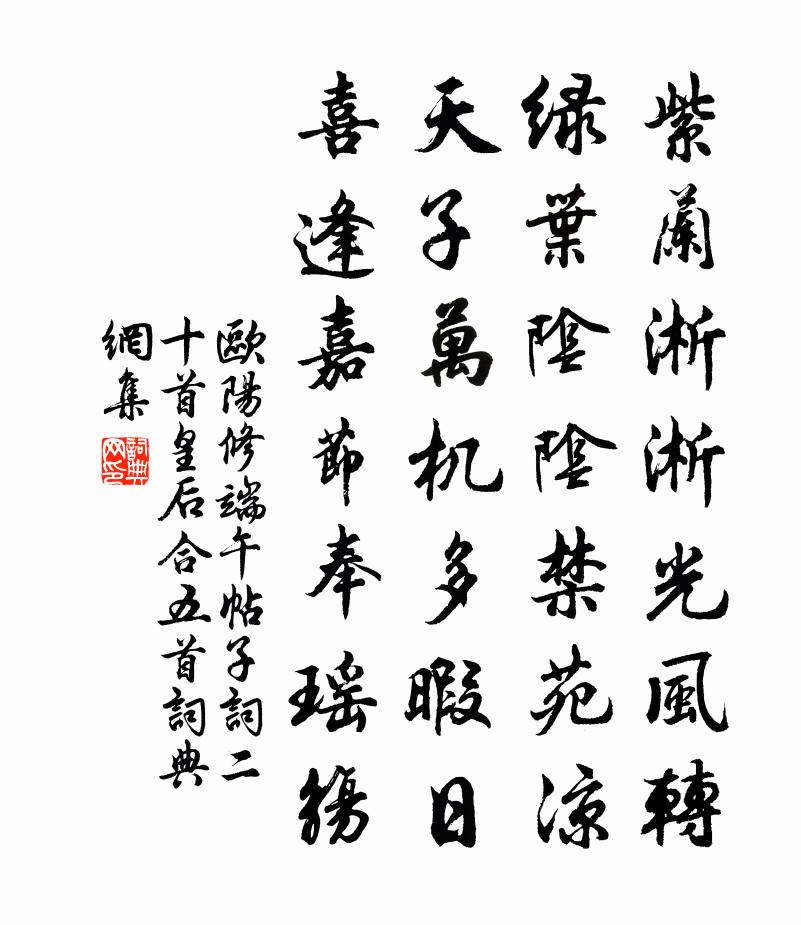 紫蘭淅淅光風轉
綠葉陰陰禁苑涼
天子萬机多暇日
喜逢嘉節奉瑤觴
歐陽修端午帖子詞二
十首皇后合五首詞典
網集
詞典网印